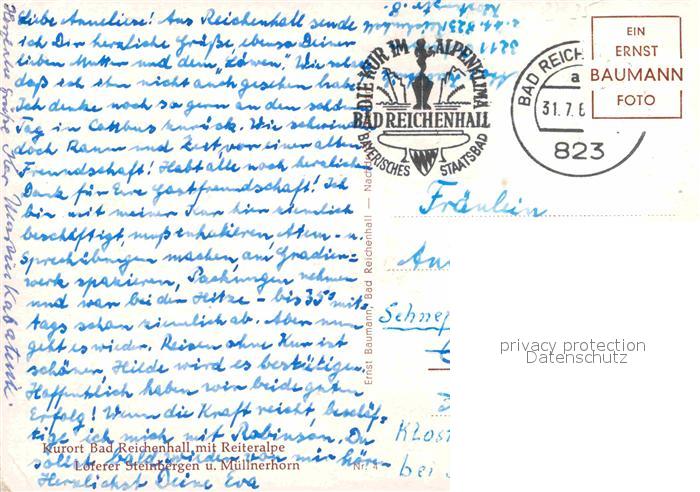 Liebe Anneliese! Aus Reichenhall sende
ich Dir herzliche Grüße, ebenso Deiner
lieben Mutter und dem „Löwen". Wie schade,
daß ich ihn nicht auch gesehen habe.
Ich denke noch so gern an den schönen
Tag in Cottbus zurück. Wie schwinden
doch Raum und Zeit vor einer alten
Freundschaft! Habt alle noch herzlichen
Dank für Eure Gastfreundschaft! Ich
bin mit meiner Kur hier ziemlich
beschäftigt, muß inhalieren, Atem- u.
Sprechübungen machen, am Gradier-
werk spazieren, Packungen nehmen
und war bei der Hitze - bis 35° mit-
tags schon ziemlich ab. Aber nun
geht es wieder. Reisen ohne Kur ist
schöner, Hilde wird es bestätigen.
Hoffentlich haben wir beide guten
Erfolg! Wenn die Kraft reicht, beschäf-
tige ich mich mit Robinson. Du
sollst bald wieder von mir hören
Herzlichst Deine Eva
Herzliche Grüße
Kurort Bad Reichenhall mit Reiteralpe
Loferer Steinbergen u. Müllnerhorn
Nr. 4
Ernst Baumann, Bad Reichenhall —
DIE KUR IM ALPENKLIMA
BAD REICHENHALL
BAYERISCHES STAATSBAD
BAD REICH
a
31.7.6
823
EIN
ERNST
BAUMANN
FOTO
Fräulein
An
Schne
Klost
bei
privacy protection
Datenschutz